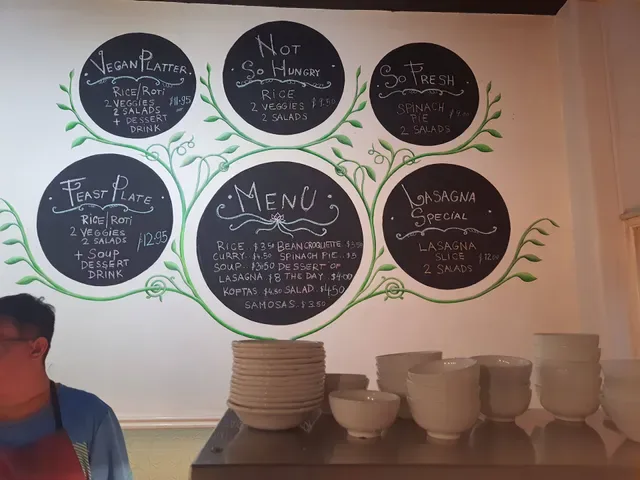 VEGAN PLATTER
RICE/ROTI
2 VEGGIES
2 SALADS
+ DESSERT
DRINK
NOT
SO HUNGRY
RICE
2 VEGGIES $9.50
2 SALADS
SO FRESH
SPINACH
PIE
2 SALADS
FEAST PLATE
RICE/ROTI
2 VEGGIES
2 SALADS
$12.95
+ SOUP
DESSERT
DRINK
MENU
RICE $3.50 BEAN CROQUETTE $3.50
CURRY SPINACH PIE
SOUP DESSERT OF
LASAGNA $8 THE DAY $4.00
KOFTAS SALAD $4.50
SAMOSAS $3.50
LASAGNA
SPECIAL
LASAGNA
SLICE $12.00
2 SALADS